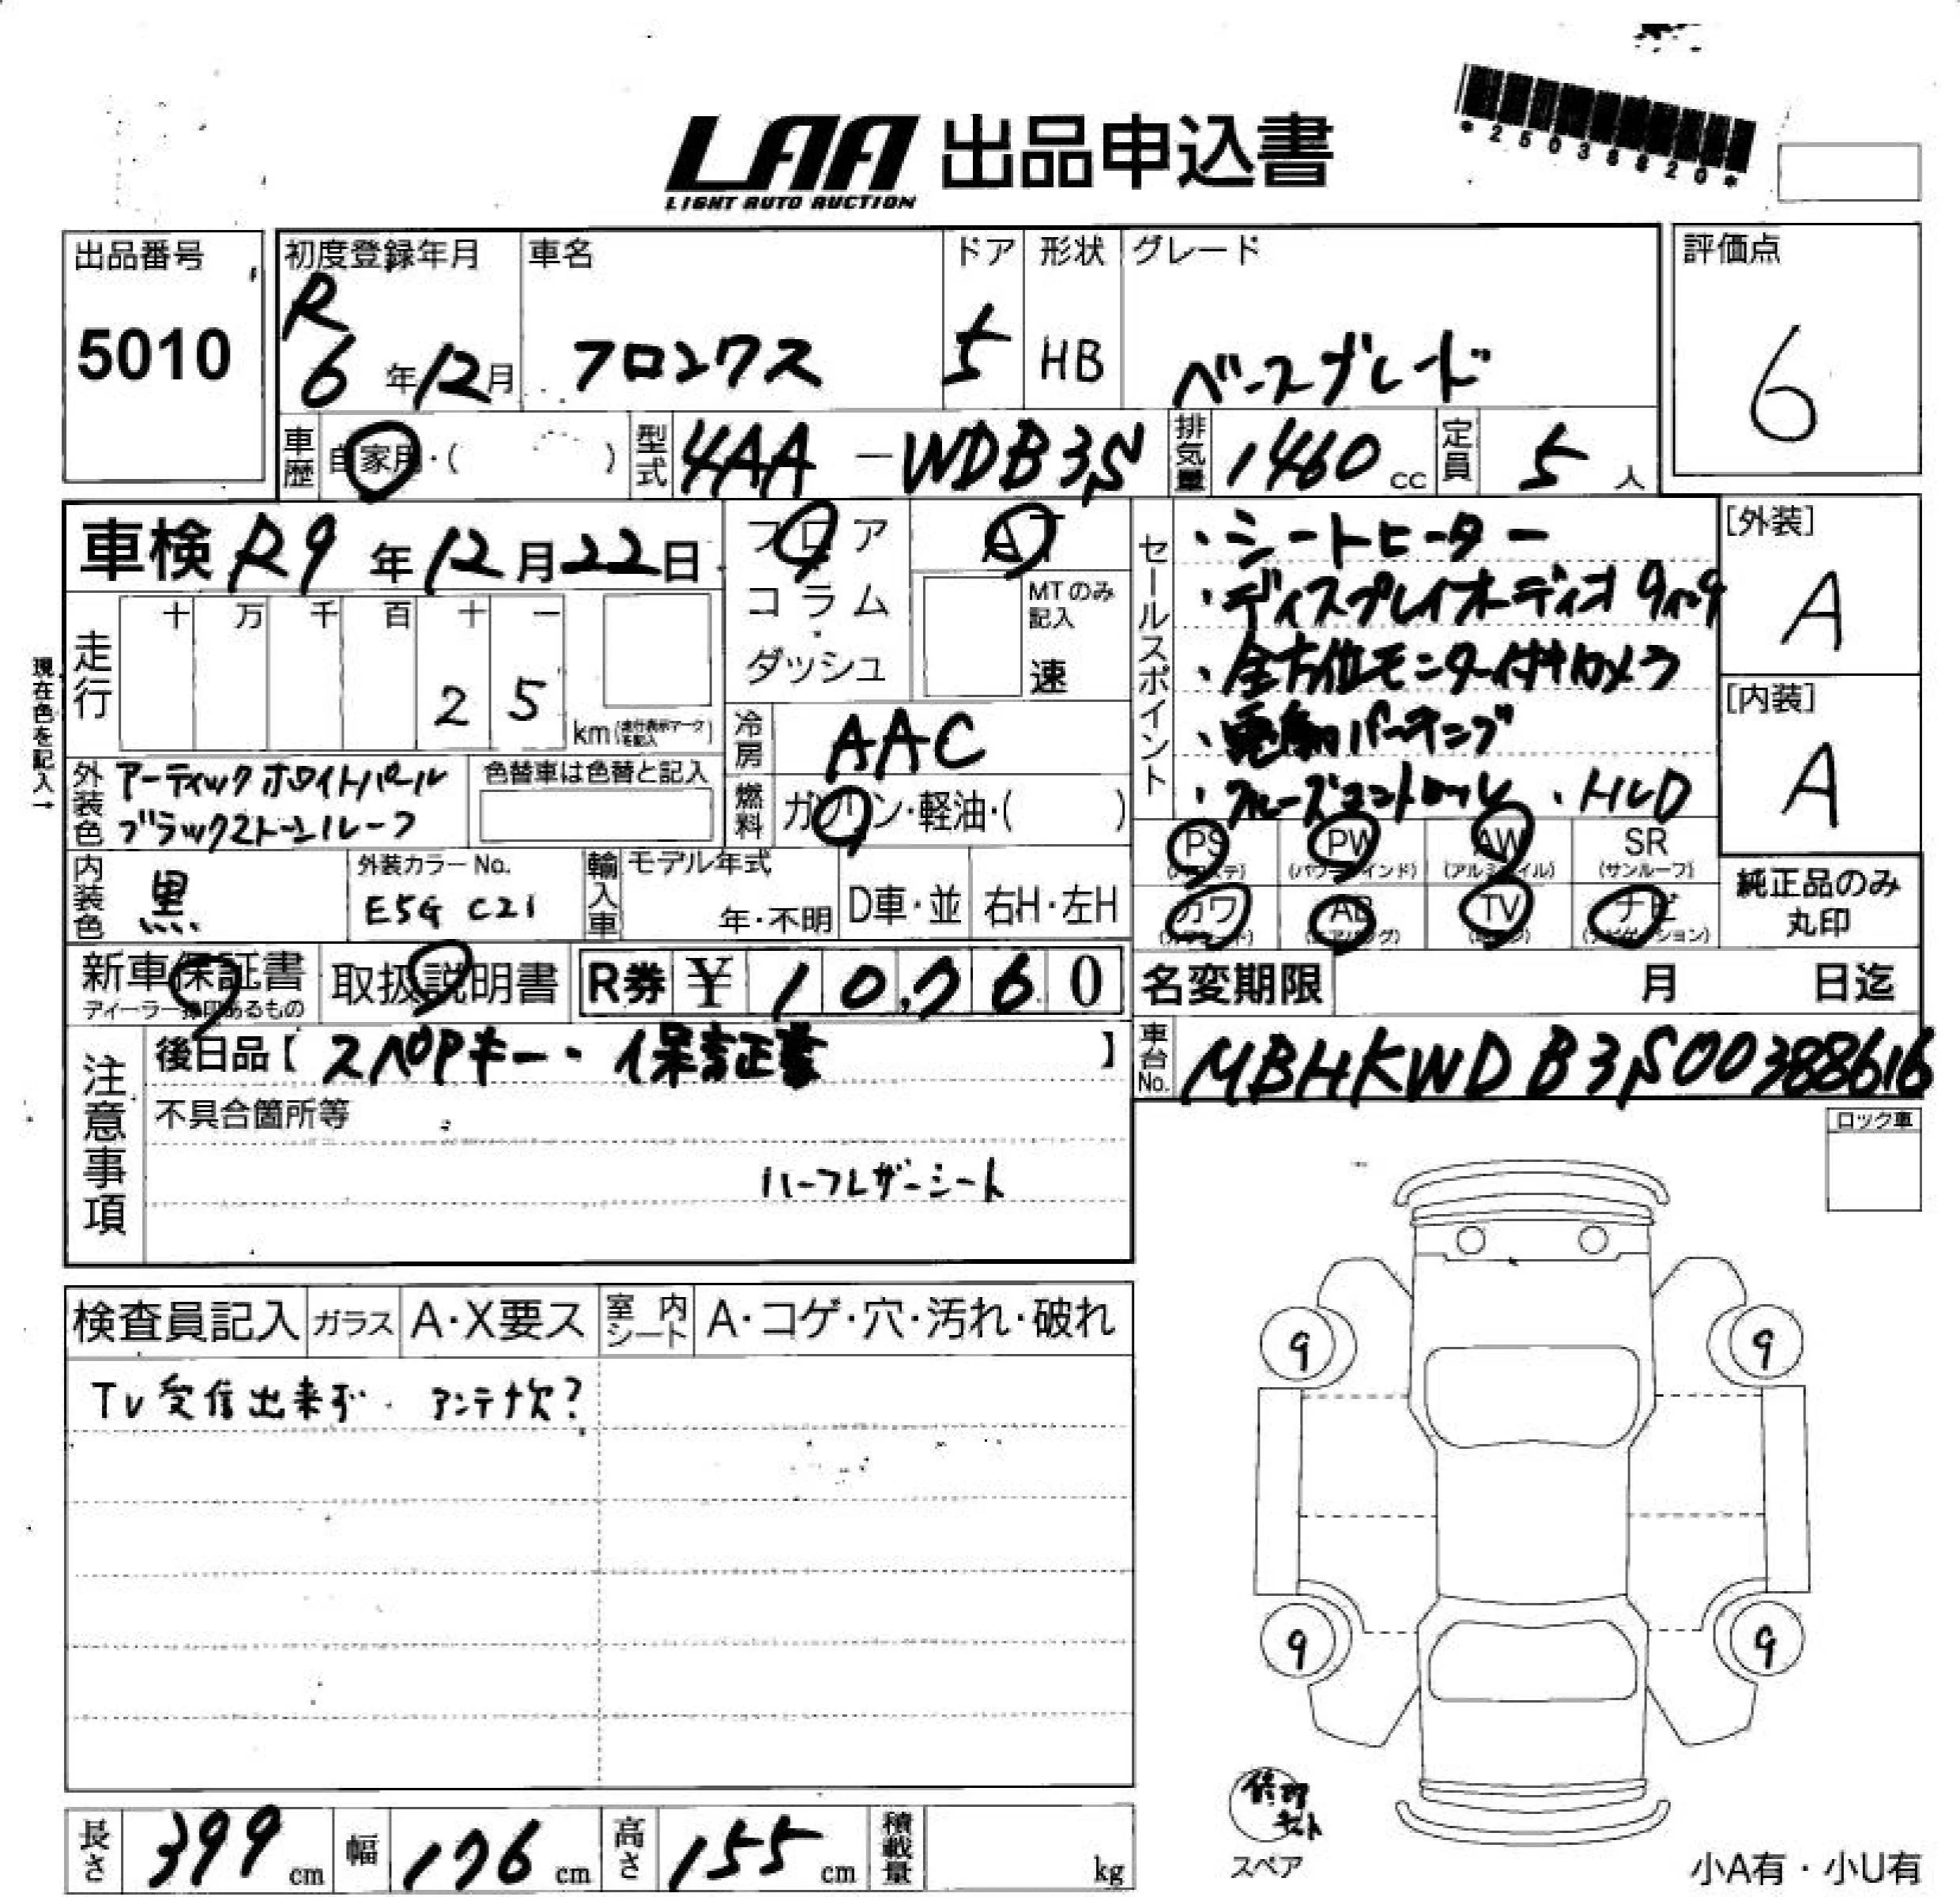 LAA 出品申込書
LIGHT AUTO AUCTION
*25038820*
出品番号
5010
初度登録年月
R
6年12月
車名
フロンクス
ドア
5
形状
HB
グレード
ベースグレード
評価点
6
車歴
自家用・( )
型式
4AA-WDB3S
排気量
1460cc
定員
5人
車検 R9年12月22日
フロア
コラム
ダッシュ
AT
MTのみ記入
速
セールスポイント
・シートヒーター
・ディスプレイオーディオ 9インチ
・全方位モニター付カメラ
・電動パーキング
・クルーズコントロール ・HUD
[外装]
A
[内装]
A
現在色を記入→
走行
十 万 千 百 十 一
2 5
km(走行表示マークを記入)
冷房
AAC
外装色
アーティックホワイトパール
ブラック2トーンルーフ
色替車は色替と記入
燃料
ガソリン・軽油・( )
PS
PW
(パワーウインド)
AW
(アルミホイル)
SR
(サンルーフ)
内装色
黒
外装カラーNo.
E5G C21
輸入車
モデル年式
年・不明
D車・並
右H・左H
カワ
AB
(エアバッグ)
TV
ナビ
(ナビゲーション)
純正品のみ
丸印
新車保証書
ディーラー押印あるもの
取扱説明書
R券 ¥10,760
名変期限 月 日迄
注意事項
後日品【スペアキー・保証書】
車台No.
MBHKWDB3S00388616
不具合箇所等
ハーフレザーシート
ロック車
検査員記入
ガラス
A・X要ス
室内シート
A・コゲ・穴・汚れ・破れ
TV受信出来ず. アンテナ欠?
9
9
9
9
修理キット
スペア
長さ 399cm
幅 176cm
高さ 155cm
積載量 kg
小A有・小U有